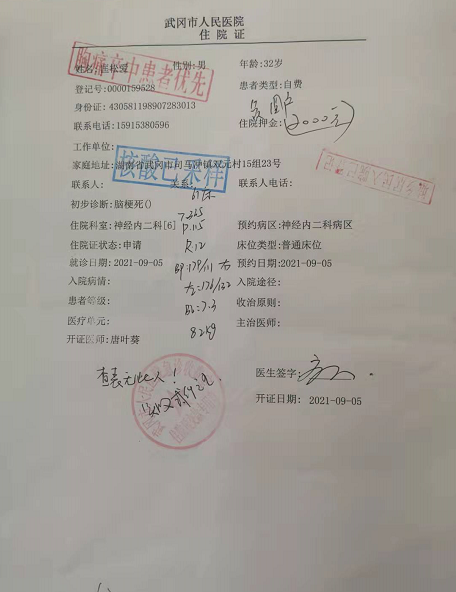 武冈市人民医院
住院证
胸痛卒中患者优先
姓名: 性别:男 年龄:32岁
登记号:0000159528 患者类型:自费
身份证:430581198907283013
联系电话:15915380596 住院押金: 2000元
工作单位:
家庭地址:湖南省武冈市司马冲镇双元村15组23号
核酸已采样
联系人: 关系: 联系人电话:
初步诊断:脑梗死()
住院科室:神经内二科[6] P:115 预约病区:神经内二科病区
住院证状态:申请 R:12 床位类型:普通床位
就诊日期:2021-09-05 右 预约日期:2021-09-05
入院病情: 入院途径:
患者等级: 收治原则:
医疗单元: 82kg 主治医师:
开证医师:唐叶葵
查表无此人! 医生签字:
开证日期: 2021-09-05